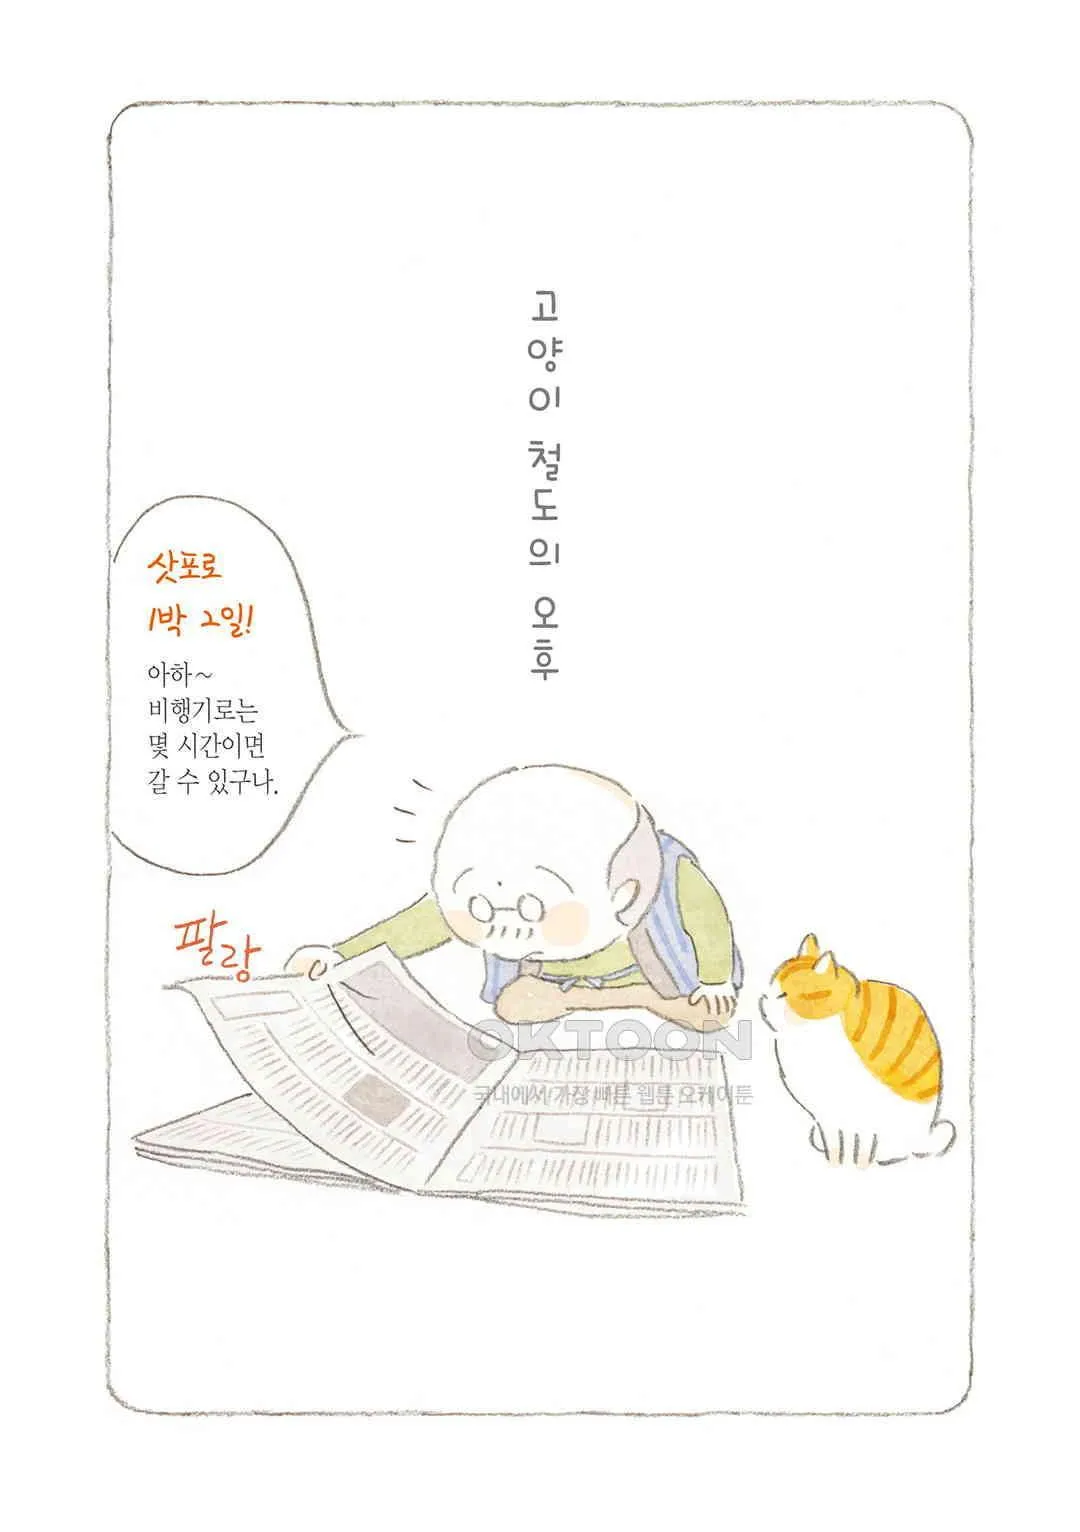 고양이 철도의 오후
삿포로
1박 2일!
아하~
비행기로는
몇 시간이면
갈 수 있구나.
팔랑
OKTOON
국내에서 가장 빠른 웹툰 오케이툰